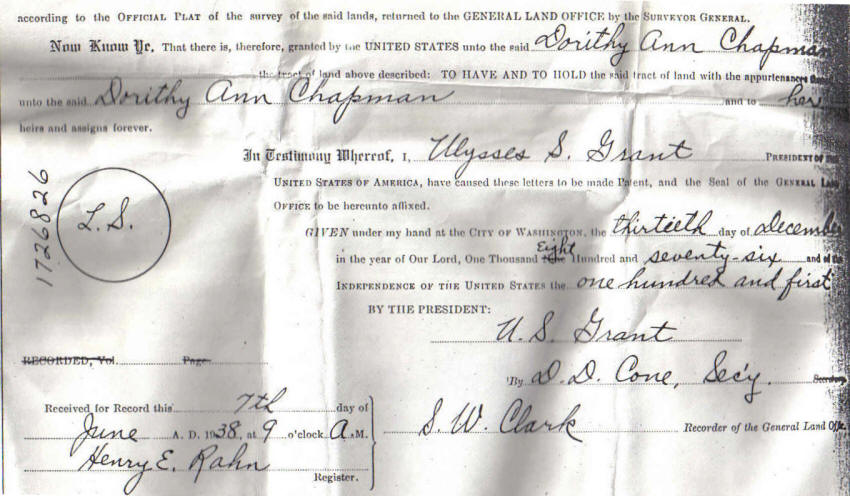 according to the OFFICIAL PLAT of the survey of the said lands, returned to the GENERAL LAND OFFICE by the SURVEYOR GENERAL.
Now Know Ye, That there is, therefore, granted by the UNITED STATES unto the said Dorithy Ann Chapman
the tract of land above described: TO HAVE AND TO HOLD the said tract of land with the appurtenances
unto the said Dorithy Ann Chapman and to her
heirs and assigns forever.
In Testimony Whereof, I, Ulysses S. Grant PRESIDENT OF THE
UNITED STATES OF AMERICA, have caused these letters to be made Patent, and the Seal of the GENERAL LAND
OFFICE to be hereunto affixed.
1726826
L.S.
GIVEN under my hand at the CITY OF WASHINGTON, the thirtieth day of December
Eight
in the year of Our Lord, One Thousand Hundred and seventy-six and of the
INDEPENDENCE OF THE UNITED STATES the one hundred and first
BY THE PRESIDENT:
U. S. Grant
RECORDED, Vol. Page
By D. D. Cone, Sec'y. Secretary
Received for Record this 7th day of
June A. D. 1938, at 9 o'clock A.M.
S. W. Clark Recorder of the General Land Office
Henry E. Rahn
Register.